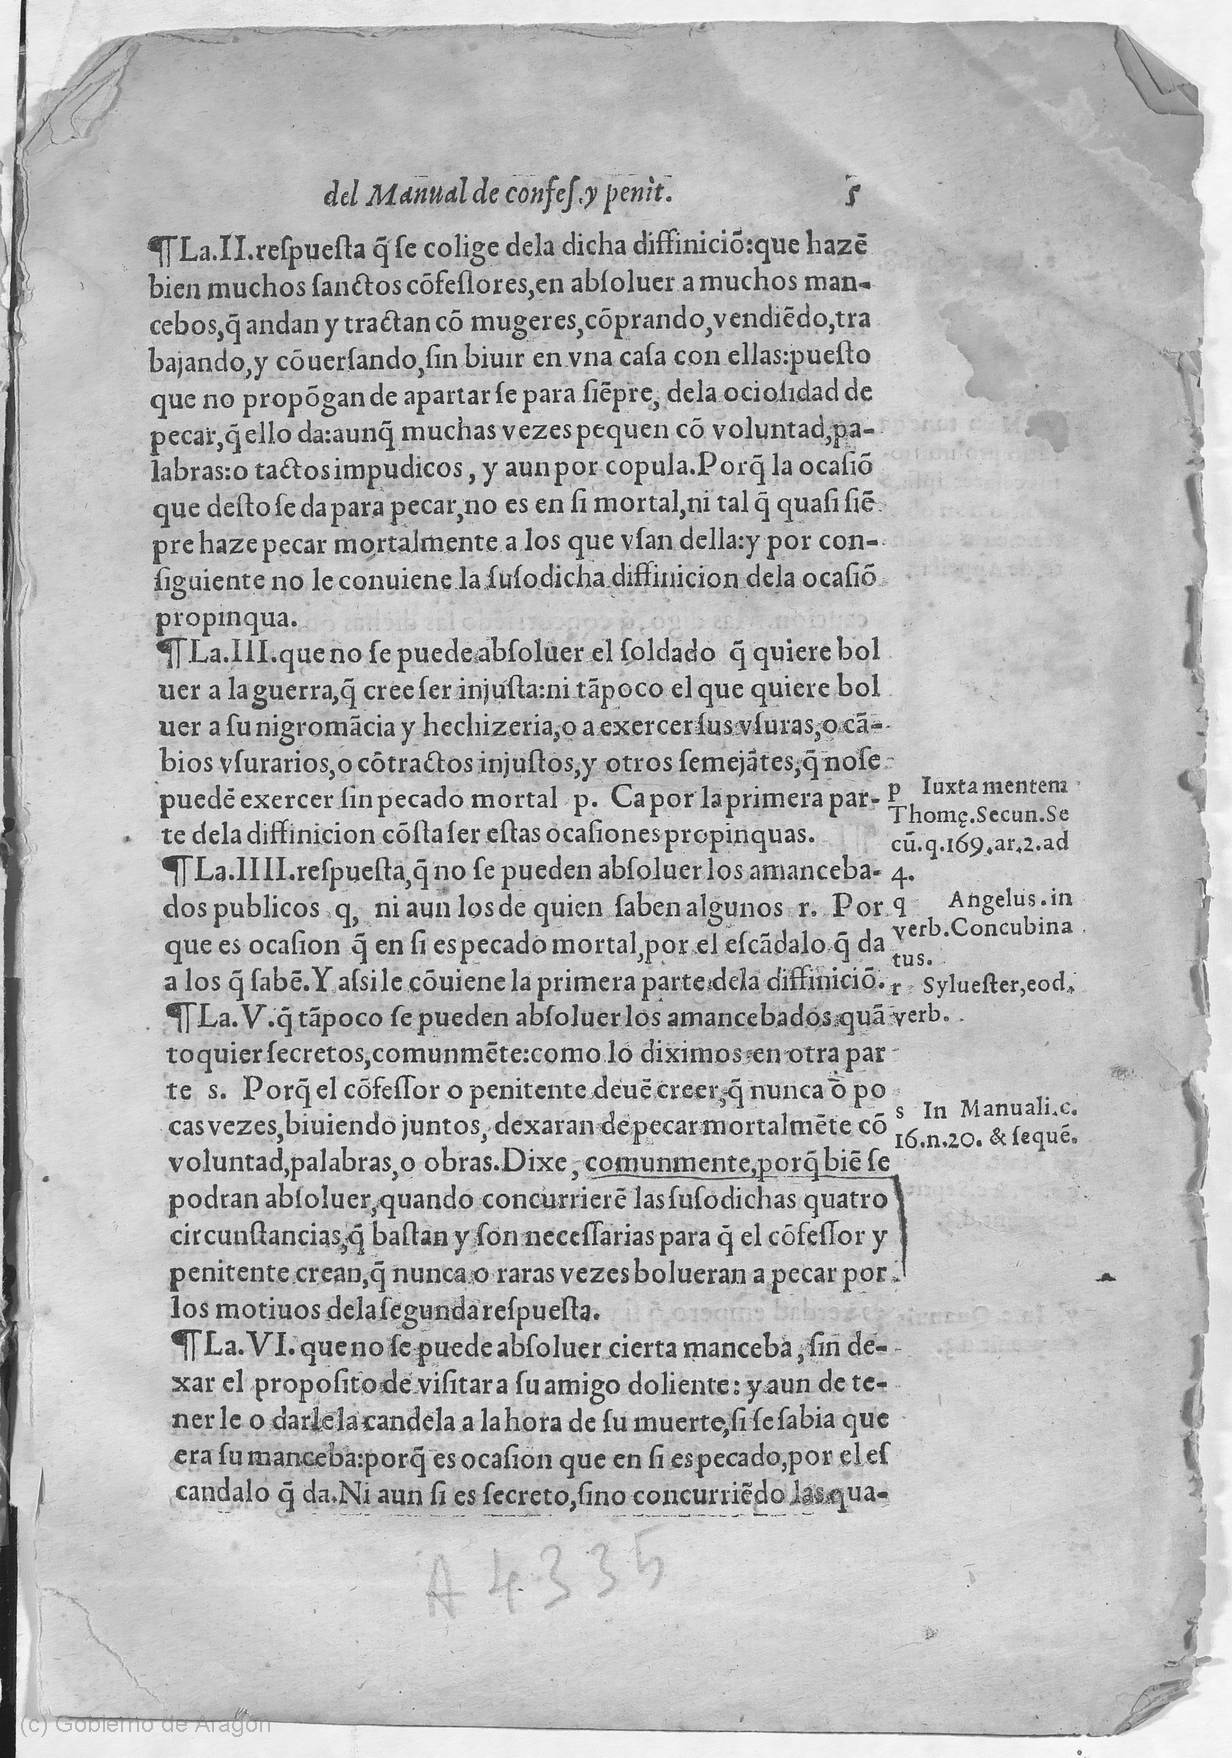 del Manual de confeſ.y penit. 5
¶ La.II.reſpueſta q̃ ſe colige dela dicha diffiniciõ:que hazẽ
bien muchos ſanctos cõfeſſores,en abſoluer a muchos man-
cebos,q̃ andan y tractan cõ mugeres,cõprando,vendiẽdo,tra
bajando,y cõuerſando,ſin biuir en vna caſa con ellas:pueſto
que no propõgan de apartar ſe para ſiẽpre, dela ocioſidad de
pecar,q̃ ello da:aunq̃ muchas vezes pequen cõ voluntad,pa-
labras:o tactos impudicos, y aun por copula.Porq̃ la ocaſiõ
que deſto ſe da para pecar,no es en ſi mortal,ni tal q̃ quaſi ſiẽ
pre haze pecar mortalmente a los que vſan della:y por con-
ſiguiente no le conuiene la ſuſodicha diffinicion dela ocaſiõ
propinqua.
¶ La.III.que no ſe puede abſoluer el ſoldado q̃ quiere bol
uer a la guerra,q̃ cree ſer injuſta:ni tãpoco el que quiere bol
uer a ſu nigromãcia y hechizeria,o a exercer ſus vſuras,o cã-
bios vſurarios,o cõtractos injuſtos,y otros ſemejãtes,q̃ no ſe
puedẽ exercer ſin pecado mortal p. Ca por la primera par-
te dela diffinicion cõſta ſer eſtas ocaſiones propinquas.
¶ La.IIII.reſpueſta,q̃ no ſe pueden abſoluer los amanceba-
dos publicos q, ni aun los de quien ſaben algunos r. Por
que es ocaſion q̃ en ſi es pecado mortal,por el eſcãdalo q̃ da
a los q̃ ſabẽ.Y aſsi le cõuiene la primera parte dela diffiniciõ.
¶ La.V.q̃ tãpoco ſe pueden abſoluer los amancebados quã
to quier ſecretos,comunmẽte:como lo diximos en otra par
te s. Porq̃ el cõfeſſor o penitente deuẽ creer,q̃ nunca õ po
cas vezes,biuiendo juntos, dexaran de pecar mortalmẽte cõ
voluntad,palabras,o obras.Dixe, comunmente,porq̃ biẽ ſe
podran abſoluer,quando concurrierẽ las ſuſodichas quatro
circunſtancias,q̃ baſtan y ſon neceſſarias para q̃ el cõfeſſor y
penitente crean,q̃ nunca o raras vezes bolueran a pecar por
los motiuos dela ſegunda reſpueſta.
¶ La.VI. que no ſe puede abſoluer cierta manceba, ſin de-
xar el propoſito de viſitar a ſu amigo doliente: y aun de te-
ner le o darle la candela a la hora de ſu muerte,ſi ſe ſabia que
era ſu manceba:porq̃ es ocaſion que en ſi es pecado,por el eſ
candalo q̃ da.Ni aun ſi es ſecreto,ſino concurriẽdo las qua-
p Iuxta mentem
Thomę.Secun.Se
cũ.q.169.ar.2.ad
4.
q Angelus.in
verb.Concubina
tus.
r Sylueſter,eod.
verb.
s In Manuali.c.
16.n.20. & ſequẽ.
A 4335
(c) Gobierno de Aragón